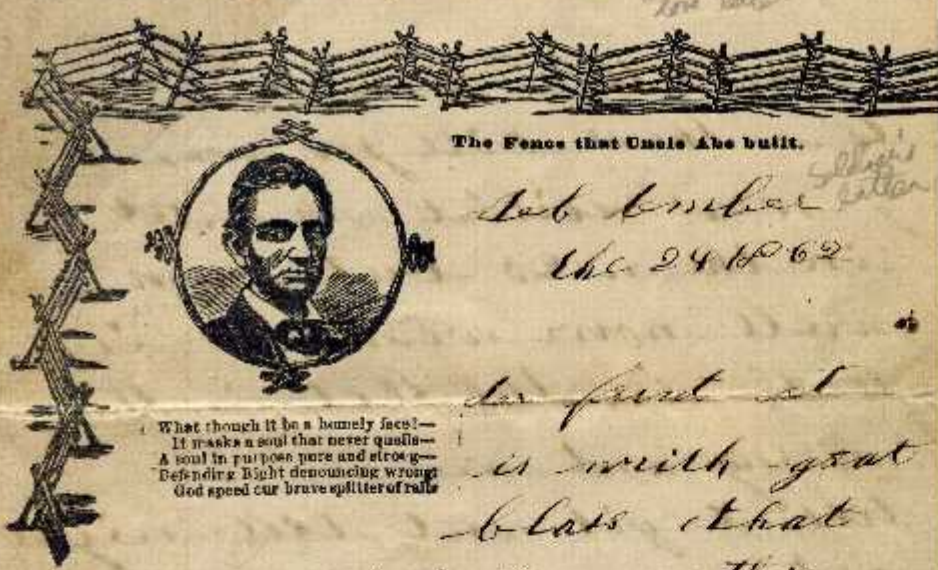 The Fence that Uncle Abe built.
Soldier's
Letter
the 24 1862
What though it be a homely face!—
It masks a soul that never quails—
A soul in purpose pure and strong—
Defending Right denouncing wrong
God speed our brave splitter of rails
is with grat
blais that